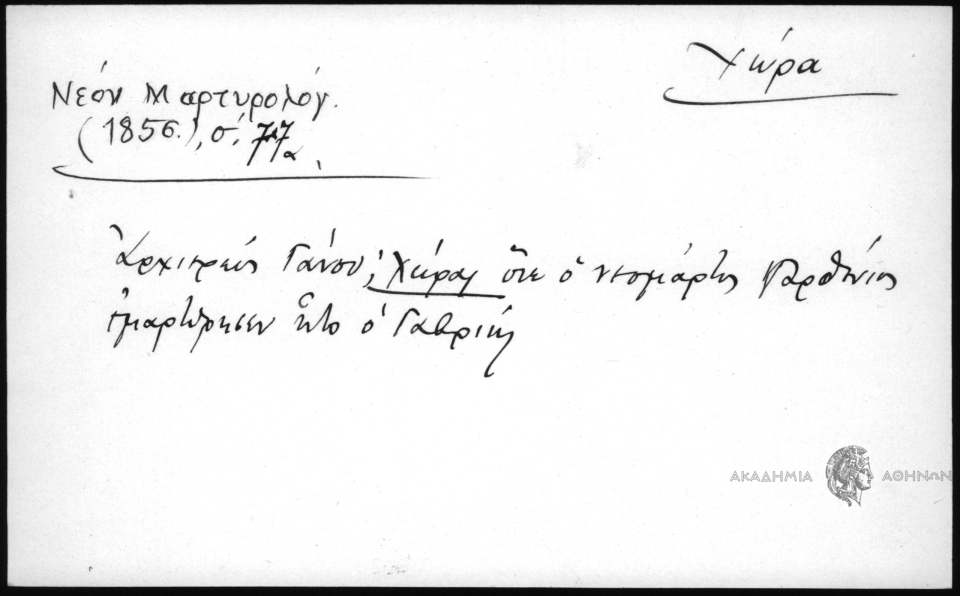 Χώρα
Νέον Μαρτυρολόγ.
(1856.), σ. 77α
Ἀρχιερεύς Γάνου, Χώρας ὅτε ὁ νεομάρτυς Παρθένιος
ἐμαρτύρησεν ἦτο ὁ Γαβριήλ
ΑΚΑΔΗΜΙΑ ΑΘΗΝΩΝ